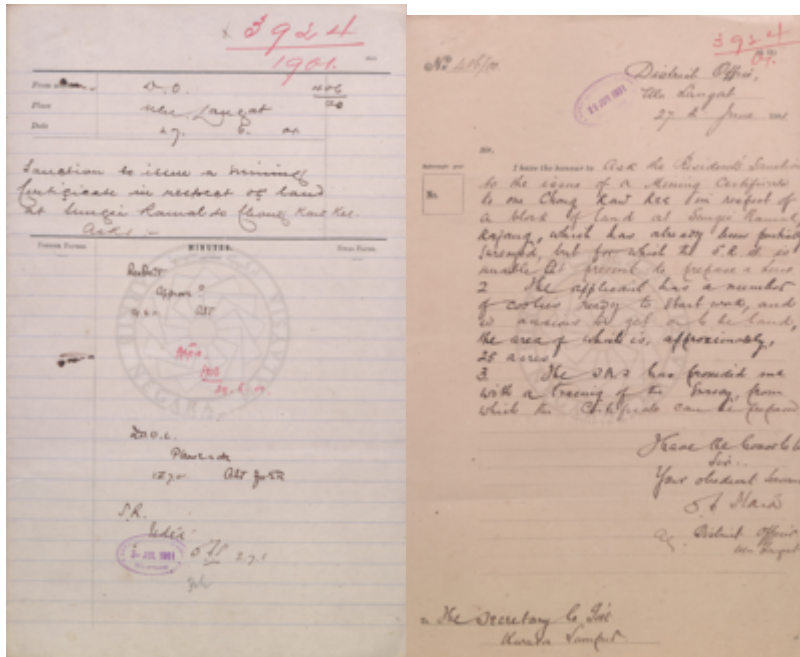 3924
1901.
From
D.O.
406
Place
Ulu Langat
Date
27. 6. 01.
Sanction to issue a mining
Certificate in respect of land
at Sungei Ramal to Chong Kaw Kee.
Asks :-
MINUTES.
Approve ?
29. 6. 01.
D.O.U.L.
S.R.
2 JUL 1901
2.7.1
3924
01.
No. 406/01
District Office,
Ulu Langat
27th June 1901
JUN 1901
Sir,
No.
I have the honour to ask the Resident's Sanction
to the issue of a Mining Certificate
to one Chong Kaw Kee in respect of
a block of land at Sungei Ramal,
Kajang, which has already been
surveyed, but for which the S.R. is
unable at present to prepare a
2 The applicant has a number
of coolies ready to start work, and
is anxious to get on to the land,
the area of which is, approximately,
25 acres.
3. The has provided me
with a tracing of the Survey, from
which the Certificate can be prepared
I have the honor to be
Sir,
Your obedient Servant
Ag. District Officer
Ulu Langat
The Secretary to Govt
Kuala Lumpur